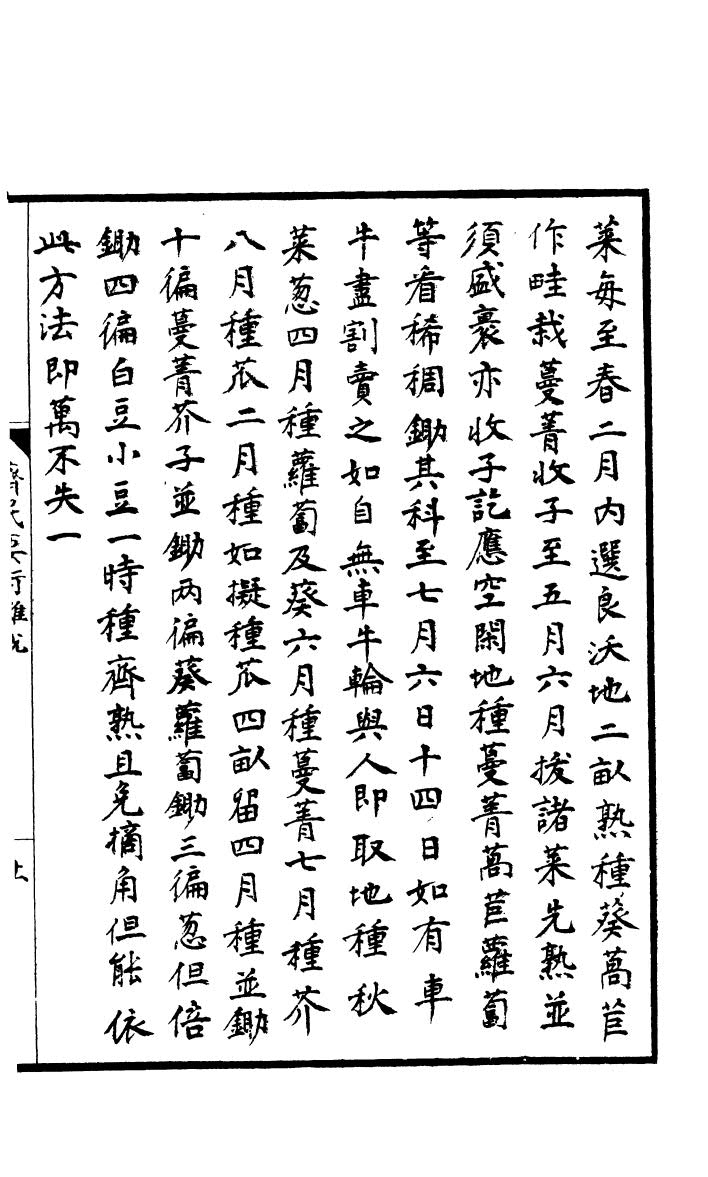 菜每至春二月內選良沃地二畝熟種葵萵苣
作畦栽蔓菁收子至五月六月拔諸菜先熟並
須盛裹亦收子訖應空閑地種蔓菁萵苣蘿蔔
等看稀稠鋤其科至七月六日十四日如有車
牛盡割賣之如自無車牛輪與人即取地種秋
菜葱四月種蘿蔔及葵六月種蔓菁七月種芥
八月種苽二月種如擬種苽四畝留四月種並鋤
十徧蔓菁芥子並鋤兩徧葵蘿蔔鋤三徧葱但倍
鋤四徧白豆小豆一時種齊熟且免摘角但能依
此方法即萬不失一
齊民要術雜說